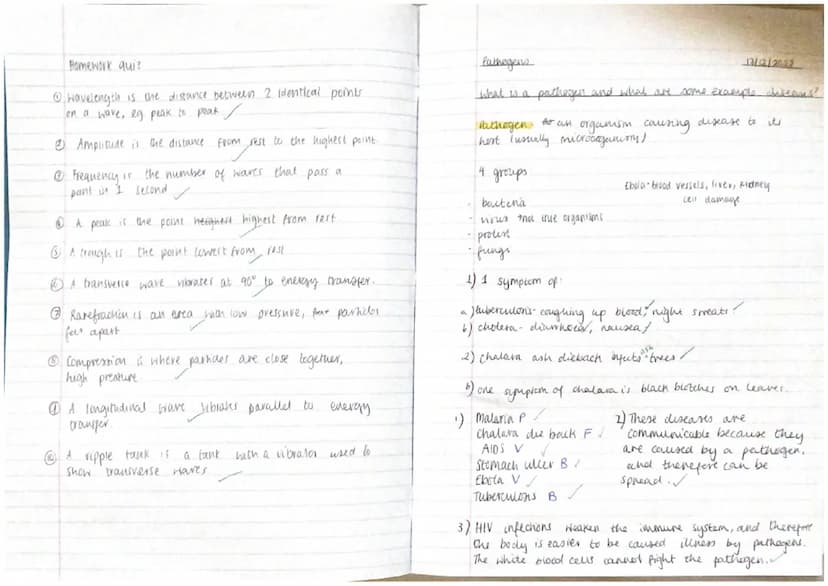 Homework quiz
① Wavelength is the distance between 2 identical points
on a wave, eg peak to peak
② Amplitude is the distance from rest to the highest point
③ Frequency is the number of waves that pass a
point in 1 second
④ A peak is the point highest from rest
⑤ A trough is the point lowest from rest
⑥ A transverse wave vibrates at 90° to energy transfer.
⑦ Rarefraction is an area with low pressure, particles
far apart
⑧ Compression is where particles are close together,
high pressure
⑨ A longitudinal wave vibrates parallel to energy
transfer.
⑩ A ripple tank is a tank with a vibrator used to
show transverse waves
Pathogens
What is a pathogen and what are some example diseases?
Pathogen an organism causing disease to its
host (usually microorganisms)
4 groups
Ebola - blood vessels, liver, kidney
cell damage
- bacteria
- virus * not true organisms
- protist
- fungs
1) 1 symptom of:
a) tuberculoris - coughing up blood, night sweats
b) cholera - diarrhoea, nausea
2) chalara ash dieback infects ash trees
b) one symptom of chalara is black blotches on leaves.
1) Malaria P
Chalara die back F
AIDS V
Stomach ulcer B
Ebola V
Tuberculosis B
2) These diseases are
communicable because they
are caused by a pathogen.
and therefore can be
spread.
3) HIV infections weaken the immune system, and therefore
the body is easier to be caused illness by pathogens.
The white blood cells cannot fight the pathogen.